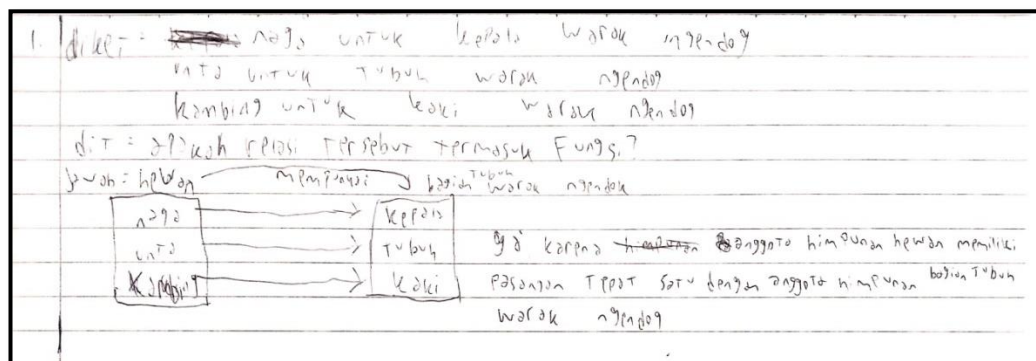 1. diket = naga untuk kepala warak ngendog
unta untuk tubuh warak ngendog
kambing untuk kaki warak ngendog
dit = apakah relasi tersebut termasuk Fungsi?
Jawab = hewan mempunyai bagian Tubuh warak ngendok
naga kepala
unta Tubuh
Kambing kaki
ya karena anggota himpunan hewan memiliki
pasangan Tepat satu dengan anggota himpunan bagian Tubuh
warak ngendog